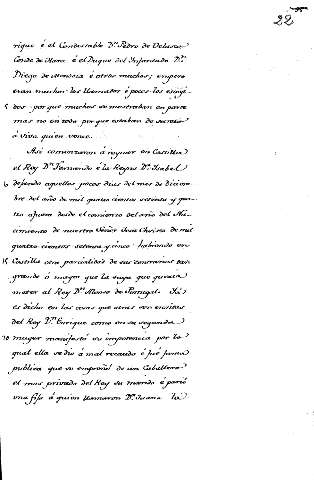 22
rique è el Condestable Dn. Pedro de Velasco
Conde de Haro è el Duque del Infantado Dn.
Diego de Mendoza è otros muchos; empero
eran muchos los llamados è pocos los escogi-
5 dos porque muchos se mostraban en parte
mas no en todo porque estaban de secreto
à viva quien vence.
Asi comenzaron à reynar en Castilla
el Rey Dn. Fernando è la Reyna Da. Isabel
dejando aquellos pocos dias del mes de Diciem-
bre del año de mil quatrocientos setenta y qua-
tro fueron desde el comienzo del año del Na-
cimiento de nuestro Señor Jesu Christo de mil
quatrocientos setenta y cinco habiendo en
15 Castilla otra parcialidad de sus contrarios tan
grande ó mayor que la suya que queria
meter al Rey Dn. Alonso de Portugal. Ya
es dicho en las cosas que acaescieron
del Rey Dn. Enrique como en su segunda
20 muger manifestó su impotencia por lo
qual ella se dio à mal recaudo è fué fama
publica que se empreñó de un Caballero
el mas privado del Rey su marido è parió
una fija à quien llamaron Da. Juana la